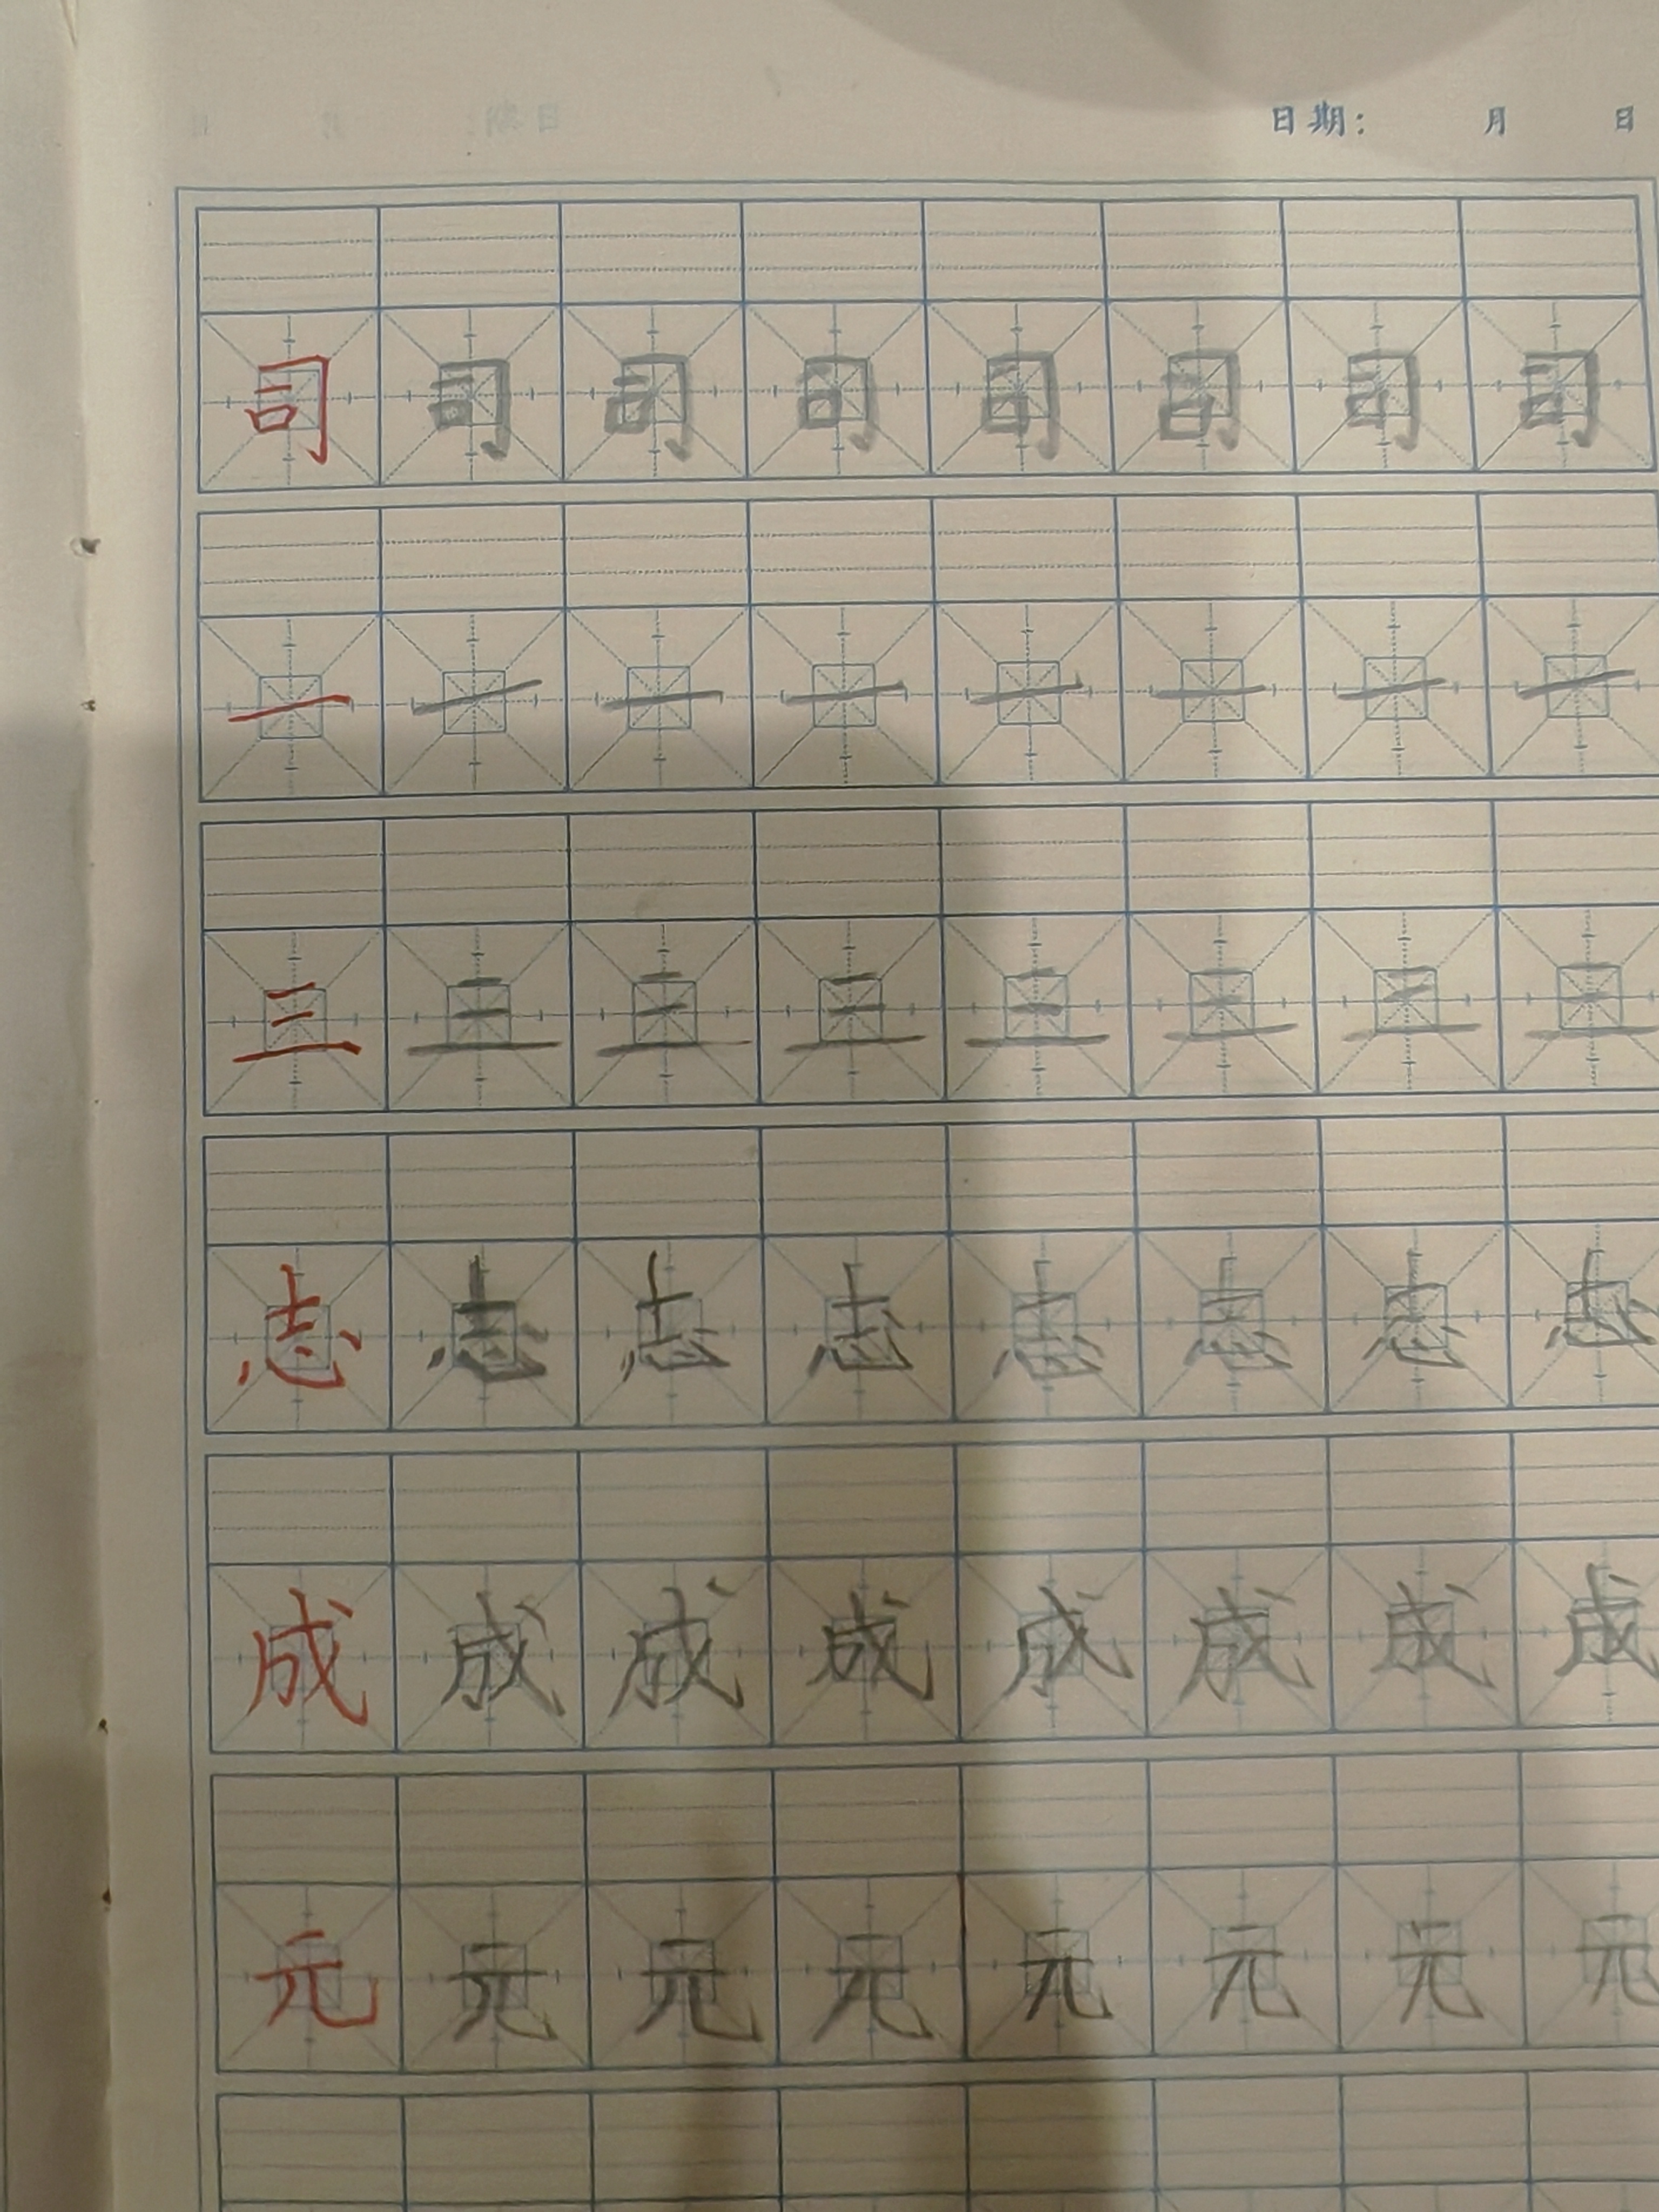 日期： 月 日
司 司 司 司 司 司 司 司
一 一 一 一 一 一 一 一
三 三 三 三 三 三 三 三
志 志 志 志 志 志 志 志
成 成 成 成 成 成 成 成
元 元 元 元 元 元 元 元